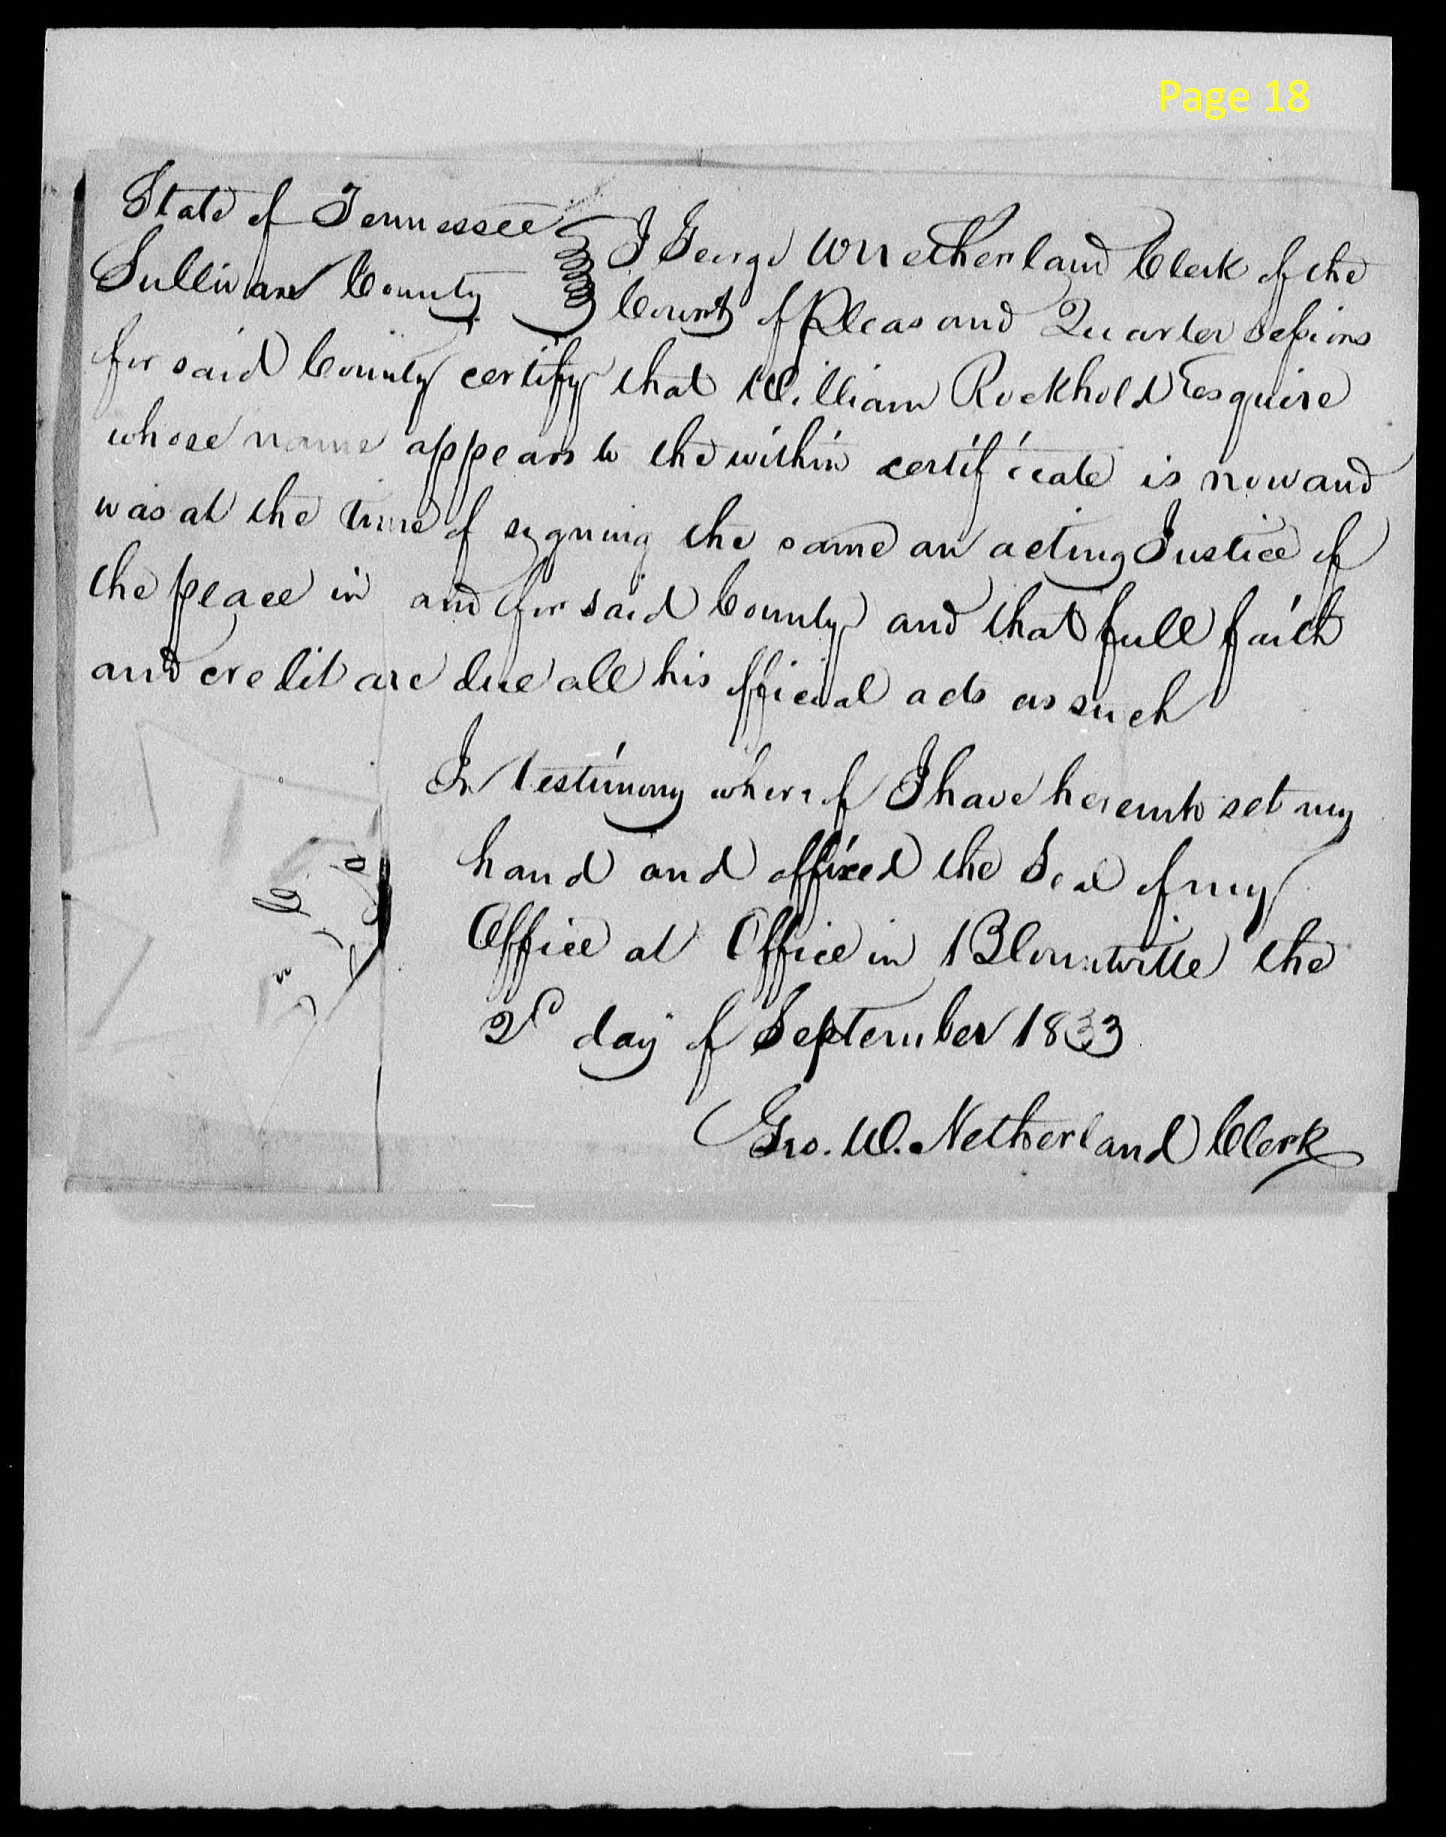 Page 18
State of Tennessee
Sullivan County
I George W Netherland Clerk of the
Court of Pleas and Quarter Sessions
for said County certify that William Rockhold Esquire
whose name appears to the within certificate is now and
was at the time of signing the same an acting Justice of
the peace in and for said County and that full faith
and credit are due all his official acts as such
In testimony whereof I have hereunto set my
hand and affixed the Seal of my
Office at Office in Blountville the
2d day of September 1833
Geo. W. Netherland Clerk